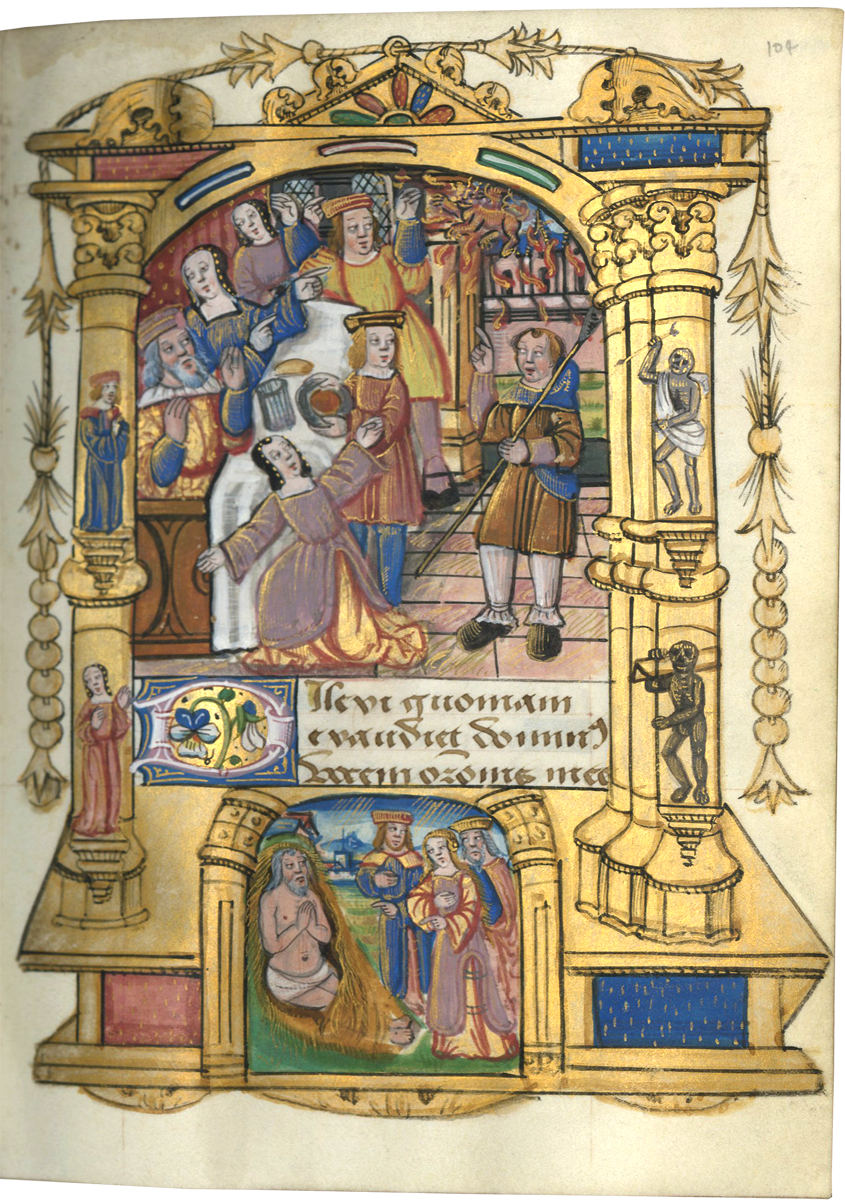 104
DIlexi quoniam
exaudiet dominꝰ
Vocem orōnis mee